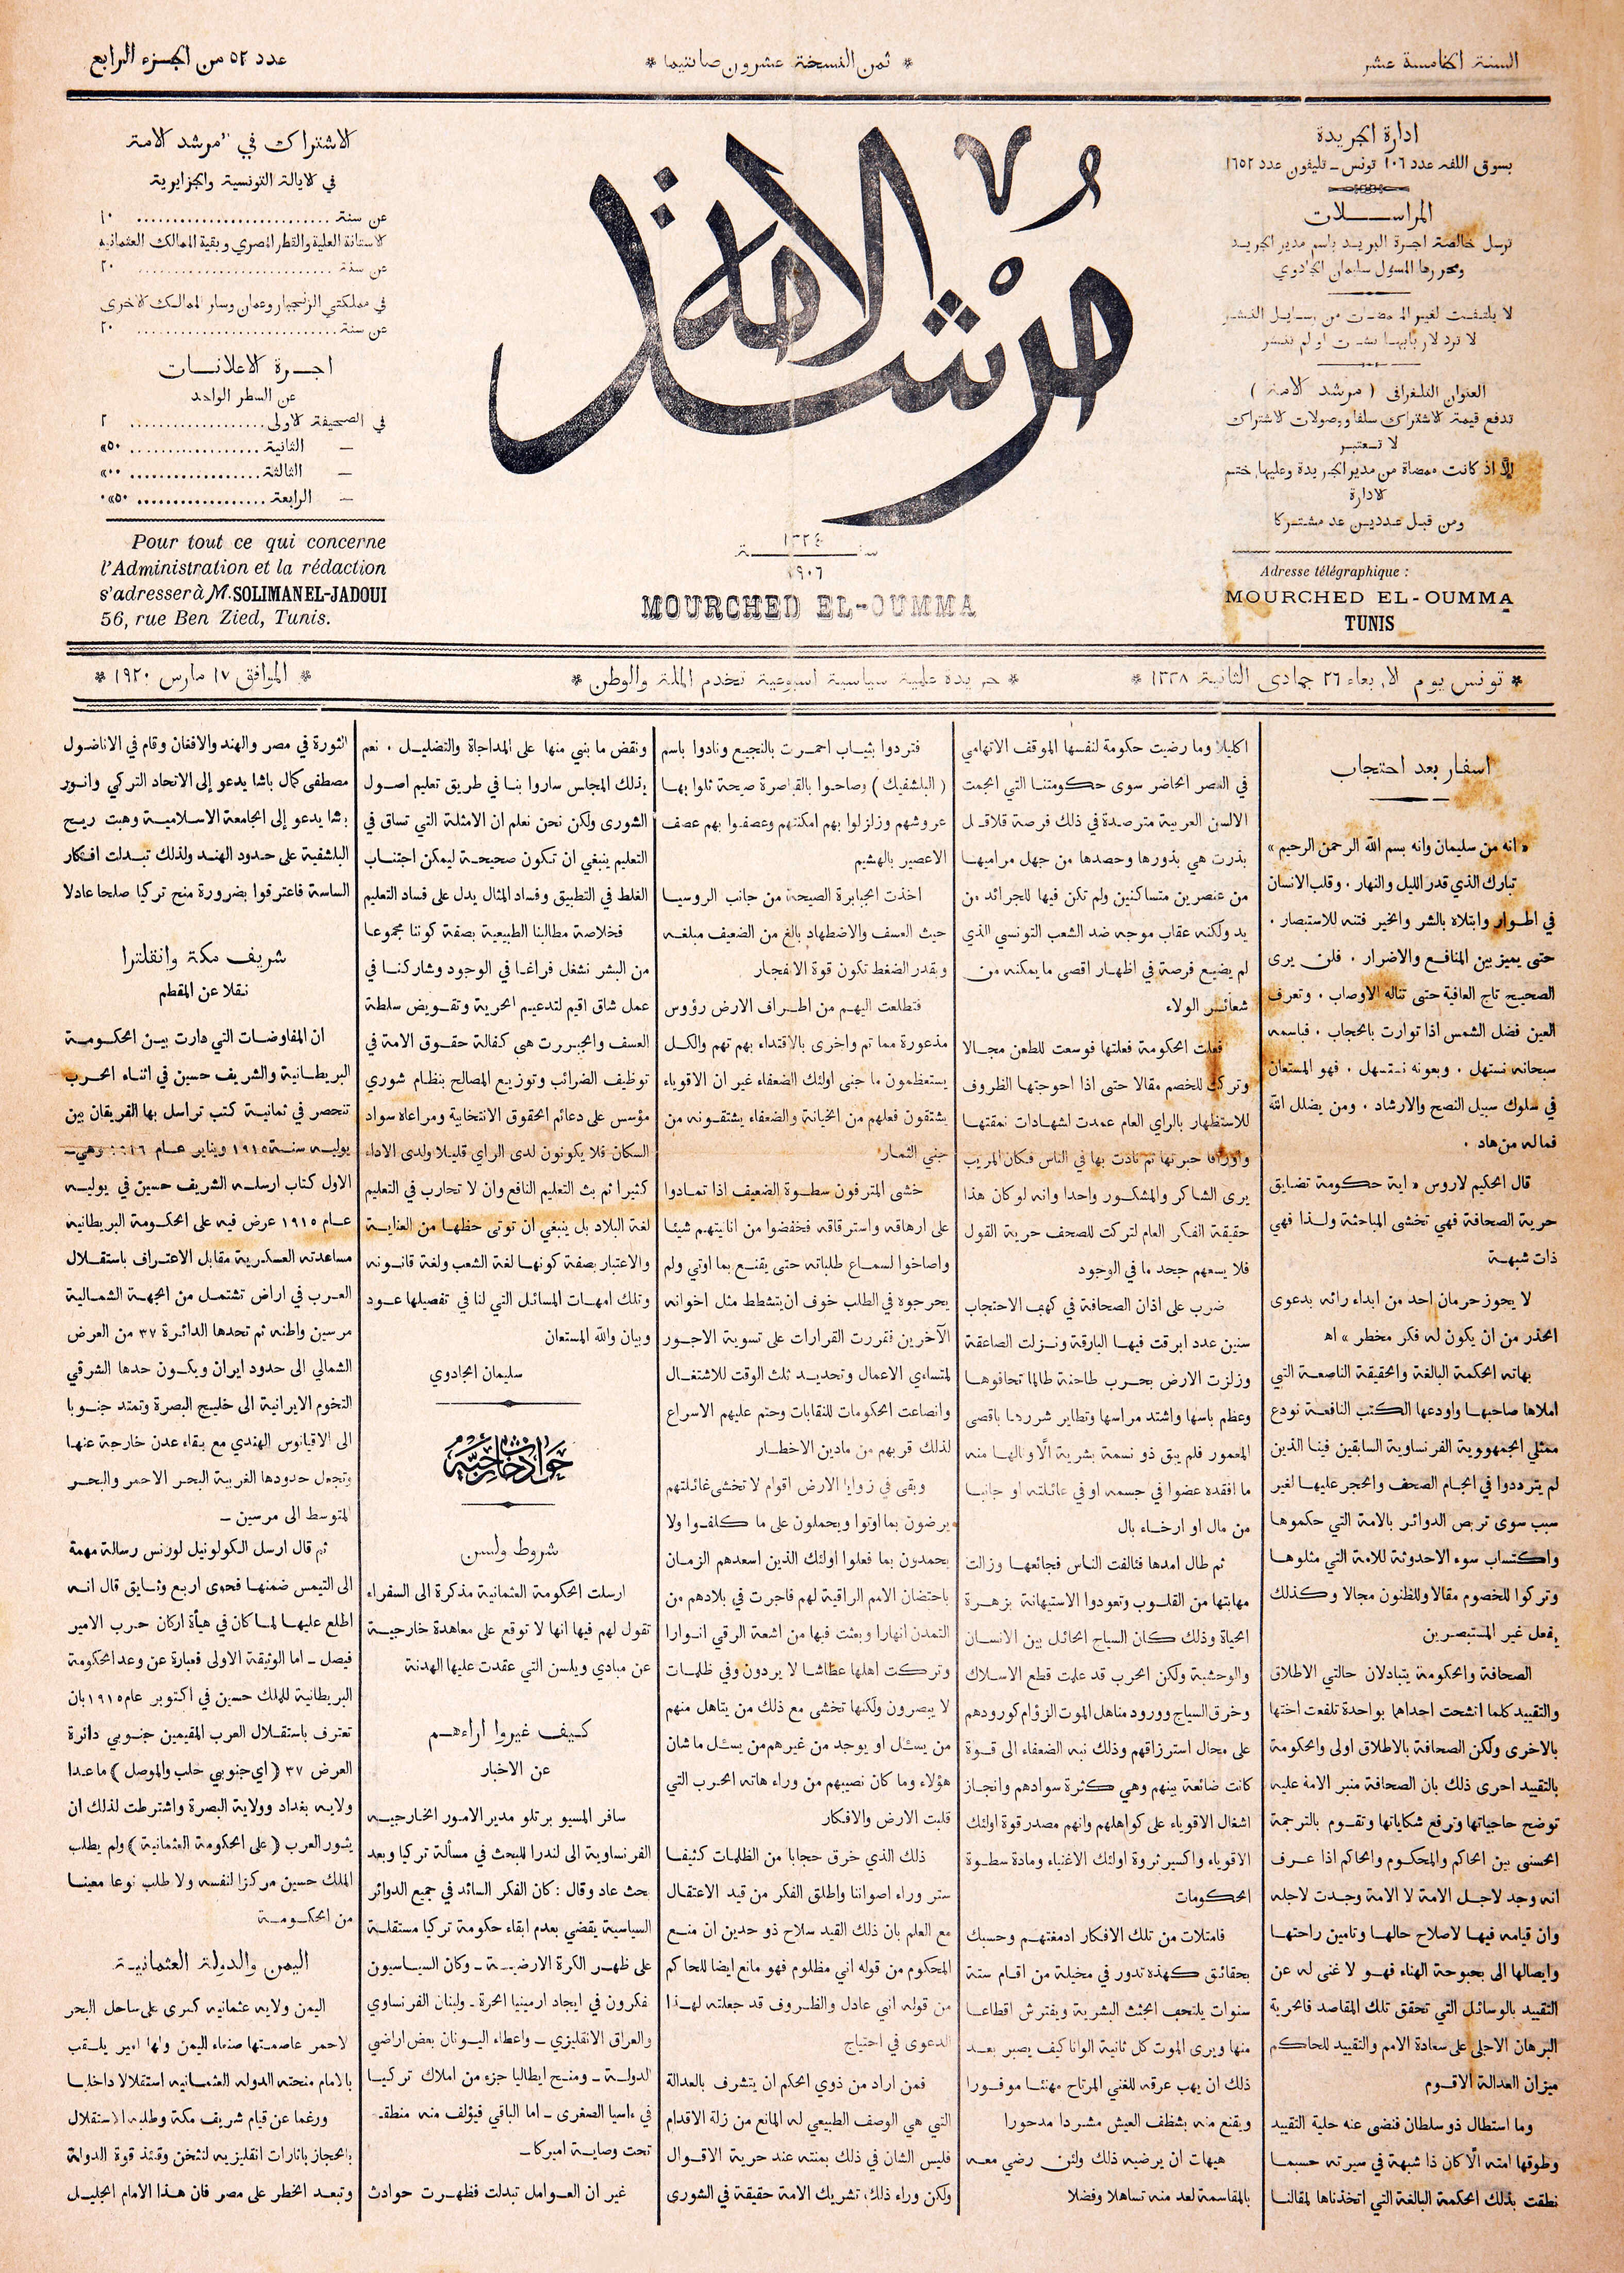 السنة الخامسة عشر
* ثمن النسخة عشرون صانتيما *
عدد ٥٢ من الجزء الرابع
ادارة الجريدة
بسوق اللفه عدد ١٠٦ تونس ـ تليفون عدد ١٦٥٢
المراسـلات
ترسل خالصة اجرة البريد باسم مدير الجريد
ومحررها المسؤل سليمان الجادوي
لا يلتفت لغير من رسايل النشر
لا ترد لاربابها نشرت او لم تنشر
العنوان التلغرافى ( مرشد الامة )
تدفع قيمة الاشتراك سلفا ووصولات الاشتراك
لا تعتبر
الا اذ كانت ممضاة من مدير الجريدة وعليها ختم
الادارة
ومن قبل عددين عد مشتركا
Adresse télégraphique :
MOURCHED EL-OUMMA
TUNIS
مرشد الامة
سنة
١٣٢٤
١٩٠٦
MOURCHED EL-OUMMA
الاشتراك في "مرشد الامة
في الايالة التونسية والجزايرية
عن سنة .......................... ١٠
الاستانة العلية والقطر المصري وبقية الممالك العثمانية
عن سنة .......................... ٢٠
في مملكتي الزنجبار وعمان وساير الممالك الاخرى
عن سنة .......................... ٢٠
اجـرة الاعلانـات
عن السطر الواحد
في الصحيفة الاولى .................. ٢
— الثانية .................. ٥٠»
— الثالثة ..................
— الرابعة ..................
Pour tout ce qui concerne
l'Administration et la rédaction
s'adresser à M. SOLIMAN EL-JADOUI
56, rue Ben Zied, Tunis.
* تونس يوم الاربعاء ٢٦ جمادى الثانية ١٣٣٨ *
* جريدة علمية سياسية اسبوعية تخدم الملة والوطن *
* الموافق ١٧ مارس ١٩٢٠ *
اسفار بعد احتجاب
« انه من سليمان وانه بسم الله الرحمن الرحيم »
تبارك الذي قدر الليل والنهار . وقلب الانسان
في اطوار وابتلاه بالشر والخير فتنه للاستبصار .
حتى يميز بين المنافع والاضرار . فلن يرى
الصحيح تاج العافية حتى تناله الاوصاب . وتعرف
العين فضل الشمس اذا توارت بالحجاب . فباسمه
سبحانه نستهل . وبعونه نبتهل . فهو المستعان
في سلوك سبيل النصح والارشاد . ومن يضلل الله
فما له من هاد .
قال الحكيم لاروس « اية حكومة تضايق
حرية الصحافة فهي تخشى المباحثة ولذا فهي
ذات شبهة
لا يجوز حرمان احد من ابداء رائه بدعوى
الحذر من ان يكون له فكر مخطر » اه
بهاته الحكمة البالغة والحقيقة الناصعة التي
املاها صاحبها واودعها الكتب النافعة نودع
ممثلي الجمهووية الفرنساوية السابقين فينا الذين
لم يترددوا في الجام الصحف والحجر عليها لغير
سبب سوى تربص الدوائر بالامة التي حكموها
واكتساب سوء الاحدوثة للامة التي مثلوها
وتركوا للخصوم مقالا وللظنون مجالا وكذلك
يفعل غير المستبصرين
الصحافة والحكومة يتبادلان حالتي الاطلاق
والتقييد كلما اتشحت احداهما بواحدة تلفعت اختها
بالاخرى ولكن الصحافة بالاطلاق اولى والحكومة
بالتقييد احرى ذلك بان الصحافة منبر الامة عليه
توضح حاجياتها وترفع شكاياتها وتقوم بالترجمة
الحسنى بين الحاكم والمحكوم والحاكم اذا عرف
انه وجد لاجل الامة لا الامة وجدت لاجله
وان قيامه فيها لاصلاح حالها وتامين راحتها
وايصالها الى بحبوحة الهناء فهو لا غنى له عن
التقييد بالوسائل التي تحقق تلك المقاصد فالحرية
البرهان الاجلى على سعادة الامم والتقييد للحاكم
ميزان العدالة الاقوم
وما استطال ذو سلطان فنضى عنه حلية التقييد
وطوقها امته الا كان ذا شبهة في سيرته حسبما
نطقت بذلك الحكمة البالغة التي اتخذناها لمقالنا
اكليلا وما رضيت حكومة لنفسها الموقف الاتهامي
في العصر الحاضر سوى حكومتنا التي الجمت
الالسن العربية مترصدة في ذلك فرصة قلاقل
بذرت هي بذورها وحصدها من جهل مراميها
من عنصرين متساكنين ولم تكن فيها للجرائد من
يد ولكنه عقاب موجه ضد الشعب التونسي الذي
لم يضيع فرصة في اظهار اقصى ما يمكنه من
شعائر الولاء
فعلت الحكومة فعلتها فوسعت للطعن مجالا
وتركت للخصم مقالا حتى اذا احوجتها الظروف
للاستظهار بالراي العام عمدت لشهادات نمقتها
واوراقا حبرتها ثم نادت بها في الناس فكان المريب
يرى الشاكر والمشكور واحدا وانه لو كان هذا
حقيقة الفكر العام لتركت للصحف حرية القول
فلا يسعهم جحد ما في الوجود
ضرب على اذان الصحافة في كهف الاحتجاب
سنين عدد ابرقت فيها البارقة ونزلت الصاعقة
وزلزت الارض بحرب طاحنة طالما تحافوها
وعظم باسها واشتد مراسها وتطاير شررها باقصى
المعمور فلم يبق ذو نسمة بشرية الا ونالها منه
ما افقده عضوا في جسمه او في عائلته او جانبا
من مال او ارخاء بال
ثم طال امدها فتالفت الناس فجائعها وزالت
مهابتها من القلوب وتعودوا الاستهانة بزهرة
الحياة وذلك كان السياج الحائل بين الانسان
والوحشية ولكن الحرب قد علمت قطع الاسلاك
وخرق السياج وورود مناهل الموت الزؤام كورودهم
على مجال استرزاقهم وذلك نبه الضعفاء الى قوة
كانت ضائعة بينهم وهي كثرة سوادهم وانجاز
اشغال الاقوياء على كواهلهم وانهم مصدر قوة اولئك
الاقوياء واكسير ثروة اولئك الاغنياء ومادة سطوة
الحكومات
فامتلات من تلك الافكار ادمغتهم وحسبك
بحقائق كهذه تدور في مخيلة من اقام ستة
سنوات يلتحف الجثث البشرية ويفترش اقطاعا
منها ويرى الموت كل ثانية الوانا كيف يصبر بعد
ذلك ان يهب عرقه للغني المرتاح مهنئا موفورا
ويقنع منه بشظف العيش مشردا مدحورا
هيهات ان يرضيه ذلك ولئن رضي معه
بالمقاسمة لعد منه تساهلا وفضلا
فتردوا بثياب احمرت بالنجيع ونادوا باسم
( البلشفيك ) وصاحوا بالقياصرة صيحة ثلوا بها
عروشهم وزلزلوا بهم امكنتهم وعصفوا بهم عصف
الاعصير بالهشيم
اخذت الجبابرة الصيحة من جانب الروسيا
حيث العسف والاضطهاد بالغ من الضعيف مبلغه
وبقدر الضغط تكون قوة الانفجار
فتطلعت اليهم من اطراف الارض رؤوس
مذعورة مما تم واخرى بالاقتداء بهم تهم والكل
يستعظمون ما جنى اولئك الضعفاء غير ان الاقوياء
يشتقون فعلهم من الخيانة والضعفاء يشتقونه من
جني الثمار
خشى المترفون سطوة الضعيف اذا تمادوا
على ارهاقه واسترقاقه فخفضوا من انانيتهم شيئا
واصاخوا لسماع طلباته حتى يقنع بما اوتي ولم
يحرجوه في الطلب خوف ان يتشطط مثل اخوانه
الآخرين فقررت القرارات على تسوية الاجور
لمتساوي الاعمال وتحديد ثلث الوقت للاشتغال
وانصاعت الحكومات للنقابات وحتم عليهم الاسراع
لذلك قربهم من مادين الاخطار
وبقى في زوايا الارض اقوام لا تخشى غائلتهم
يرضون بما اوتوا ويحملون على ما كلفوا ولا
يحمدون بما فعلوا اولئك الذين اسعدهم الزمان
باحتضان الامم الراقية لهم فاجرت في بلادهم من
التمدن انهارا وبعثت فيها من اشعة الرقي انوارا
وتركت اهلها عطاشا لا يردون وفي ظلمات
لا يبصرون ولكنها تخشى مع ذلك من يتاهل منهم
من يسئل او يوجد من غيرهم من يسئل ما شان
هؤلاء وما كان نصيبهم من وراء هاته الحرب التي
قلبت الارض والافكار
ذلك الذي خرق حجابا من الظلمات كثيفا
ستر وراء اصواتنا واطلق الفكر من قيد الاعتقال
مع العلم بان ذلك القيد سلاح ذو حدين ان منع
المحكوم من قوله اني مظلوم فهو مانع ايضا للحاكم
من قوله اني عادل والظروف قد جعلته لهذا
الدعوى في احتياج
فمن اراد من ذوي الحكم ان يتشرف بالعدالة
التي هي الوصف الطبيعي له المانع من زلة الاقدام
فليس الشان في ذلك بمنته عند حرية الاقوال
ولكن وراء ذلك تشريك الامة حقيقة في الشورى
ونقض ما بني منها على المداجاة والتضليل . نعم
بذلك المجلس ساروا بنا في طريق تعليم اصول
الشورى ولكن نحن نعلم ان الامثلة التي تساق في
التعليم ينبغي ان تكون صحيحة ليمكن اجتناب
الغلط في التطبيق وفساد المثال يدل على فساد التعليم
فخلاصة مطالبنا الطبيعية بصفة كوننا مجموعا
من البشر نشغل فراغا في الوجود وشاركنا في
عمل شاق اقيم لتدعيم الحرية وتقويض سلطة
العسف والجبروت هي كفالة حقوق الامة في
توظيف الضرائب وتوزيع المصالح بنظام شوري
مؤسس على دعائم الحقوق الانتخابية ومراعاة سواد
السكان فلا يكونون لدى الراي قليلا ولدى الاداء
كثيرا ثم بث التعليم النافع وان لا تحارب في التعليم
لغة البلاد بل ينبغي ان توتى حظها من العناية
والاعتبار بصفة كونها لغة الشعب ولغة قانونه
وتلك امهات المسائل التي لنا في تفصيلها عود
وبيان والله المستعان
سليمان الجادوي
حوادث خارجية
شروط ولسن
ارسلت الحكومة العثمانية مذكرة الى السفراء
تقول لهم فيها انها لا توقع على معاهدة خارجية
عن مبادي ويلسن التي عقدت عليها الهدنة
كيف غيروا اراءهم
عن الاخبار
سافر المسيو برتلو مدير الامور الخارجية
الفرنساوية الى لندرا للبحث في مسألة تركيا وبعد
بحث عاد وقال : كان الفكر السائد في جميع الدوائر
السياسية يقضي بعدم ابقاء حكومة تركيا مستقلة
على ظهر الكرة الارضية ـ وكان السياسيون
يفكرون في ايجاد ارمينيا الحرة ـ ولبنان الفرنساوي
والعراق الانقليزي ـ واعطاء اليونان بعض اراضي
الدولة ـ ومنح ايطاليا جزء من املاك تركيا
في ءاسيا الصغرى ـ اما الباقي فيؤلف منه منطقة
تحت وصاية اميركا ـ
غير ان العوامل تبدلت فظهرت حوادث
الثورة في مصر والهند والافغان وقام في الاناضول
مصطفى كمال باشا يدعو إلى الاتحاد التركي وانور
باشا يدعو إلى الجامعة الاسلامية وهبت ريح
البلشفية على حدود الهند ولذلك تبدلت افكار
الساسة فاعترفوا بضرورة منح تركيا صلحا عادلا
شريف مكة وانقلترا
نقلا عن المقطم
ان المفاوضات التي دارت بين الحكومة
البريطانية والشريف حسين في اثناء الحرب
تنحصر في ثمانية كتب تراسل بها الفريقان بين
يوليه سنة ١٩١٥ ويناير عام ١٩١٦ وهي ـ
الاول كتاب ارسله الشريف حسين في يوليه
عام ١٩١٥ عرض فيه على الحكومة البريطانية
مساعدته العسكرية مقابل الاعتراف باستقلال
العرب في اراض تشتمل من الجهة الشمالية
مرسين واطنه ثم تحدها الدائرة ٣٧ من العرض
الشمالي الى حدود ايران ويكون حدها الشرقي
التخوم الايرانية الى خليج البصرة وتمتد جنوبا
الى الاقيانوس الهندي مع بقاء عدن خارجة عنها
وتجعل حدودها الغربية البحر الاحمر والبحر
المتوسط الى مرسين ـ
ثم قال ارسل الكولونيل لورنس رسالة مهمة
الى التيمس ضمنها فحوى اربع وثايق قال انه
اطلع عليها لما كان في هيأة اركان حرب الامير
فيصل ـ اما الوثيقة الاولى فعبارة عن وعد الحكومة
البريطانية للملك حسين في اكتوبر عام ١٩١٥ بان
تعترف باستقلال العرب المقيمين جنوبي دائرة
العرض ٣٧ ( اي جنوبي حلب والموصل ) ما عدا
ولاية بغداد وولاية البصرة واشترطت لذلك ان
يثور العرب ( على الحكومة العثمانية ) ولم يطلب
الملك حسين مركزا لنفسه ولا طلب نوعا معينا
من الحكومة
اليمن والدولة العثمانية
اليمن ولاية عثمانية كبرى على ساحل البحر
لاحمر عاصمتها صنعاء اليمن ولها امير يلقب
بالامام منحته الدولة العثمانية استقلالا داخليا
ورغما عن قيام شريف مكة وطلبه الاستقلال
بالحجاز باثارات انقليزيه لتثخن وقتئذ قوة الدولة
وتبعد الخطر على مصر فان هذا الامام الجليل